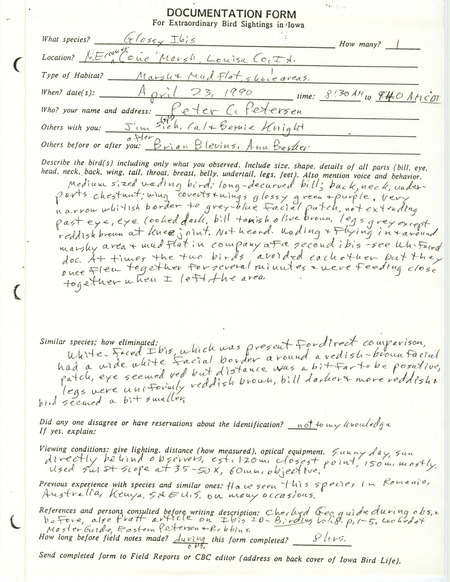 DOCUMENTATION FORM
For Extraordinary Bird Sightings in Iowa
What species? Glossy Ibis How many? 1
Location? Cone Marsh, Louisa Co., Ia.
Type of Habitat? Marsh & Mud Flat, shore areas.
When? date(s): April 23, 1990 time: 8:30 AM to 9:40 AM CDT
Who? your name and address: Peter C. Petersen
Others with you: Jim Cal & Bernie Knight
Others before or after you: after Brian Blevins, Ann Barker
Describe the bird(s) including only what you observed. Include size, shape, details of all parts (bill, eye,
head, neck, back, wing, tail, throat, breast, belly, undertail, legs, feet). Also mention voice and behavior.
Medium sized wading bird; long-decurved bill; back, neck, under-
parts chestnut, wing coverts & wings glossy green & purple. Very
narrow whitish border to grey-blue facial patch, not extending
past eye, eye looked dark, bill tanish olive brown, legs grey except
reddish brown at knee joint. Not heard. Wading & flying in & around
marshy area & mud flat in company of a second ibis - see Wh. Faced
doc. At times the two birds avoided each other but they
once flew together for several minutes & were feeding close
together when I left the area.
Similar species; how eliminated:
White-Faced Ibis, which was present for direct comparison,
had a wide white facial border around a redish-brown facial
patch, eye seemed red but distance was a bit far to be positive,
legs were uniformly reddish brown, bill darker & more reddish &
bird seemed a bit smaller.
Did any one disagree or have reservations about the identification? not to my knowledge
If yes, explain:
Viewing conditions: give lighting, distance (how measured), optical equipment. Sunny day, sun
directly behind observers, est. 120m closest point, 150m mostly.
Used Swift scope at 35-50X, 60mm objective.
Previous experience with species and similar ones: Have seen this species in Romania,
Australia, Kenya, S & E U.S. on many occasions.
References and persons consulted before writing description: Checked Geo guide during obs. &
before, also Pratt article on Ibis ID - Birding Vol. 8 p. 1-5, looked at
Master Guide, Eastern Peterson & Robbins.
How long before field notes made? during obs. this form completed? 8 hrs.
Send completed form to Field Reports or CBC editor (address on back cover of Iowa Bird Life).